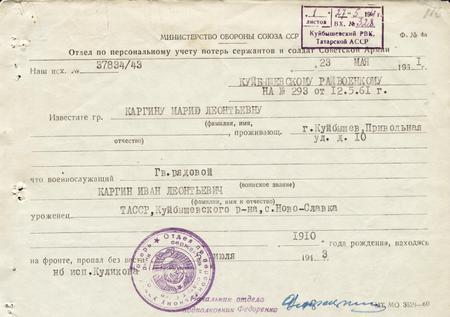 1 27-5 1961 г.
листов ВХ. № 328
Куйбышевский РВК,
Татарской АССР
МИНИСТЕРСТВО ОБОРОНЫ СОЮЗА ССР
Ф. № 4а
Отдел по персональному учету потерь сержантов и солдат Советской Армии
Наш исх. № 37834/43 23 МАЯ 1961
КУЙБЫШЕВСКОМУ РАЙВОЕНКОМУ
НА № 293 от 12.5.61 г.
Известите гр. КАРГИНУ МАРИЮ ЛЕОНТЬЕВНУ
(фамилия, имя,
отчество) проживающ. г.Куйбышев,Привольная
ул. д. 10
что военнослужащий Гв.рядовой
(воинское звание)
КАРГИН ИВАН ЛЕОНТЬЕВИЧ
(фамилия, имя и отчество)
уроженец ТАССР,Куйбышевского р-на,с.Ново-Славка
1910 года рождения, находясь
на фронте, пропал без вести июля 1943
нб исп.Куликова
Начальник отдела
подполковник Федоренко